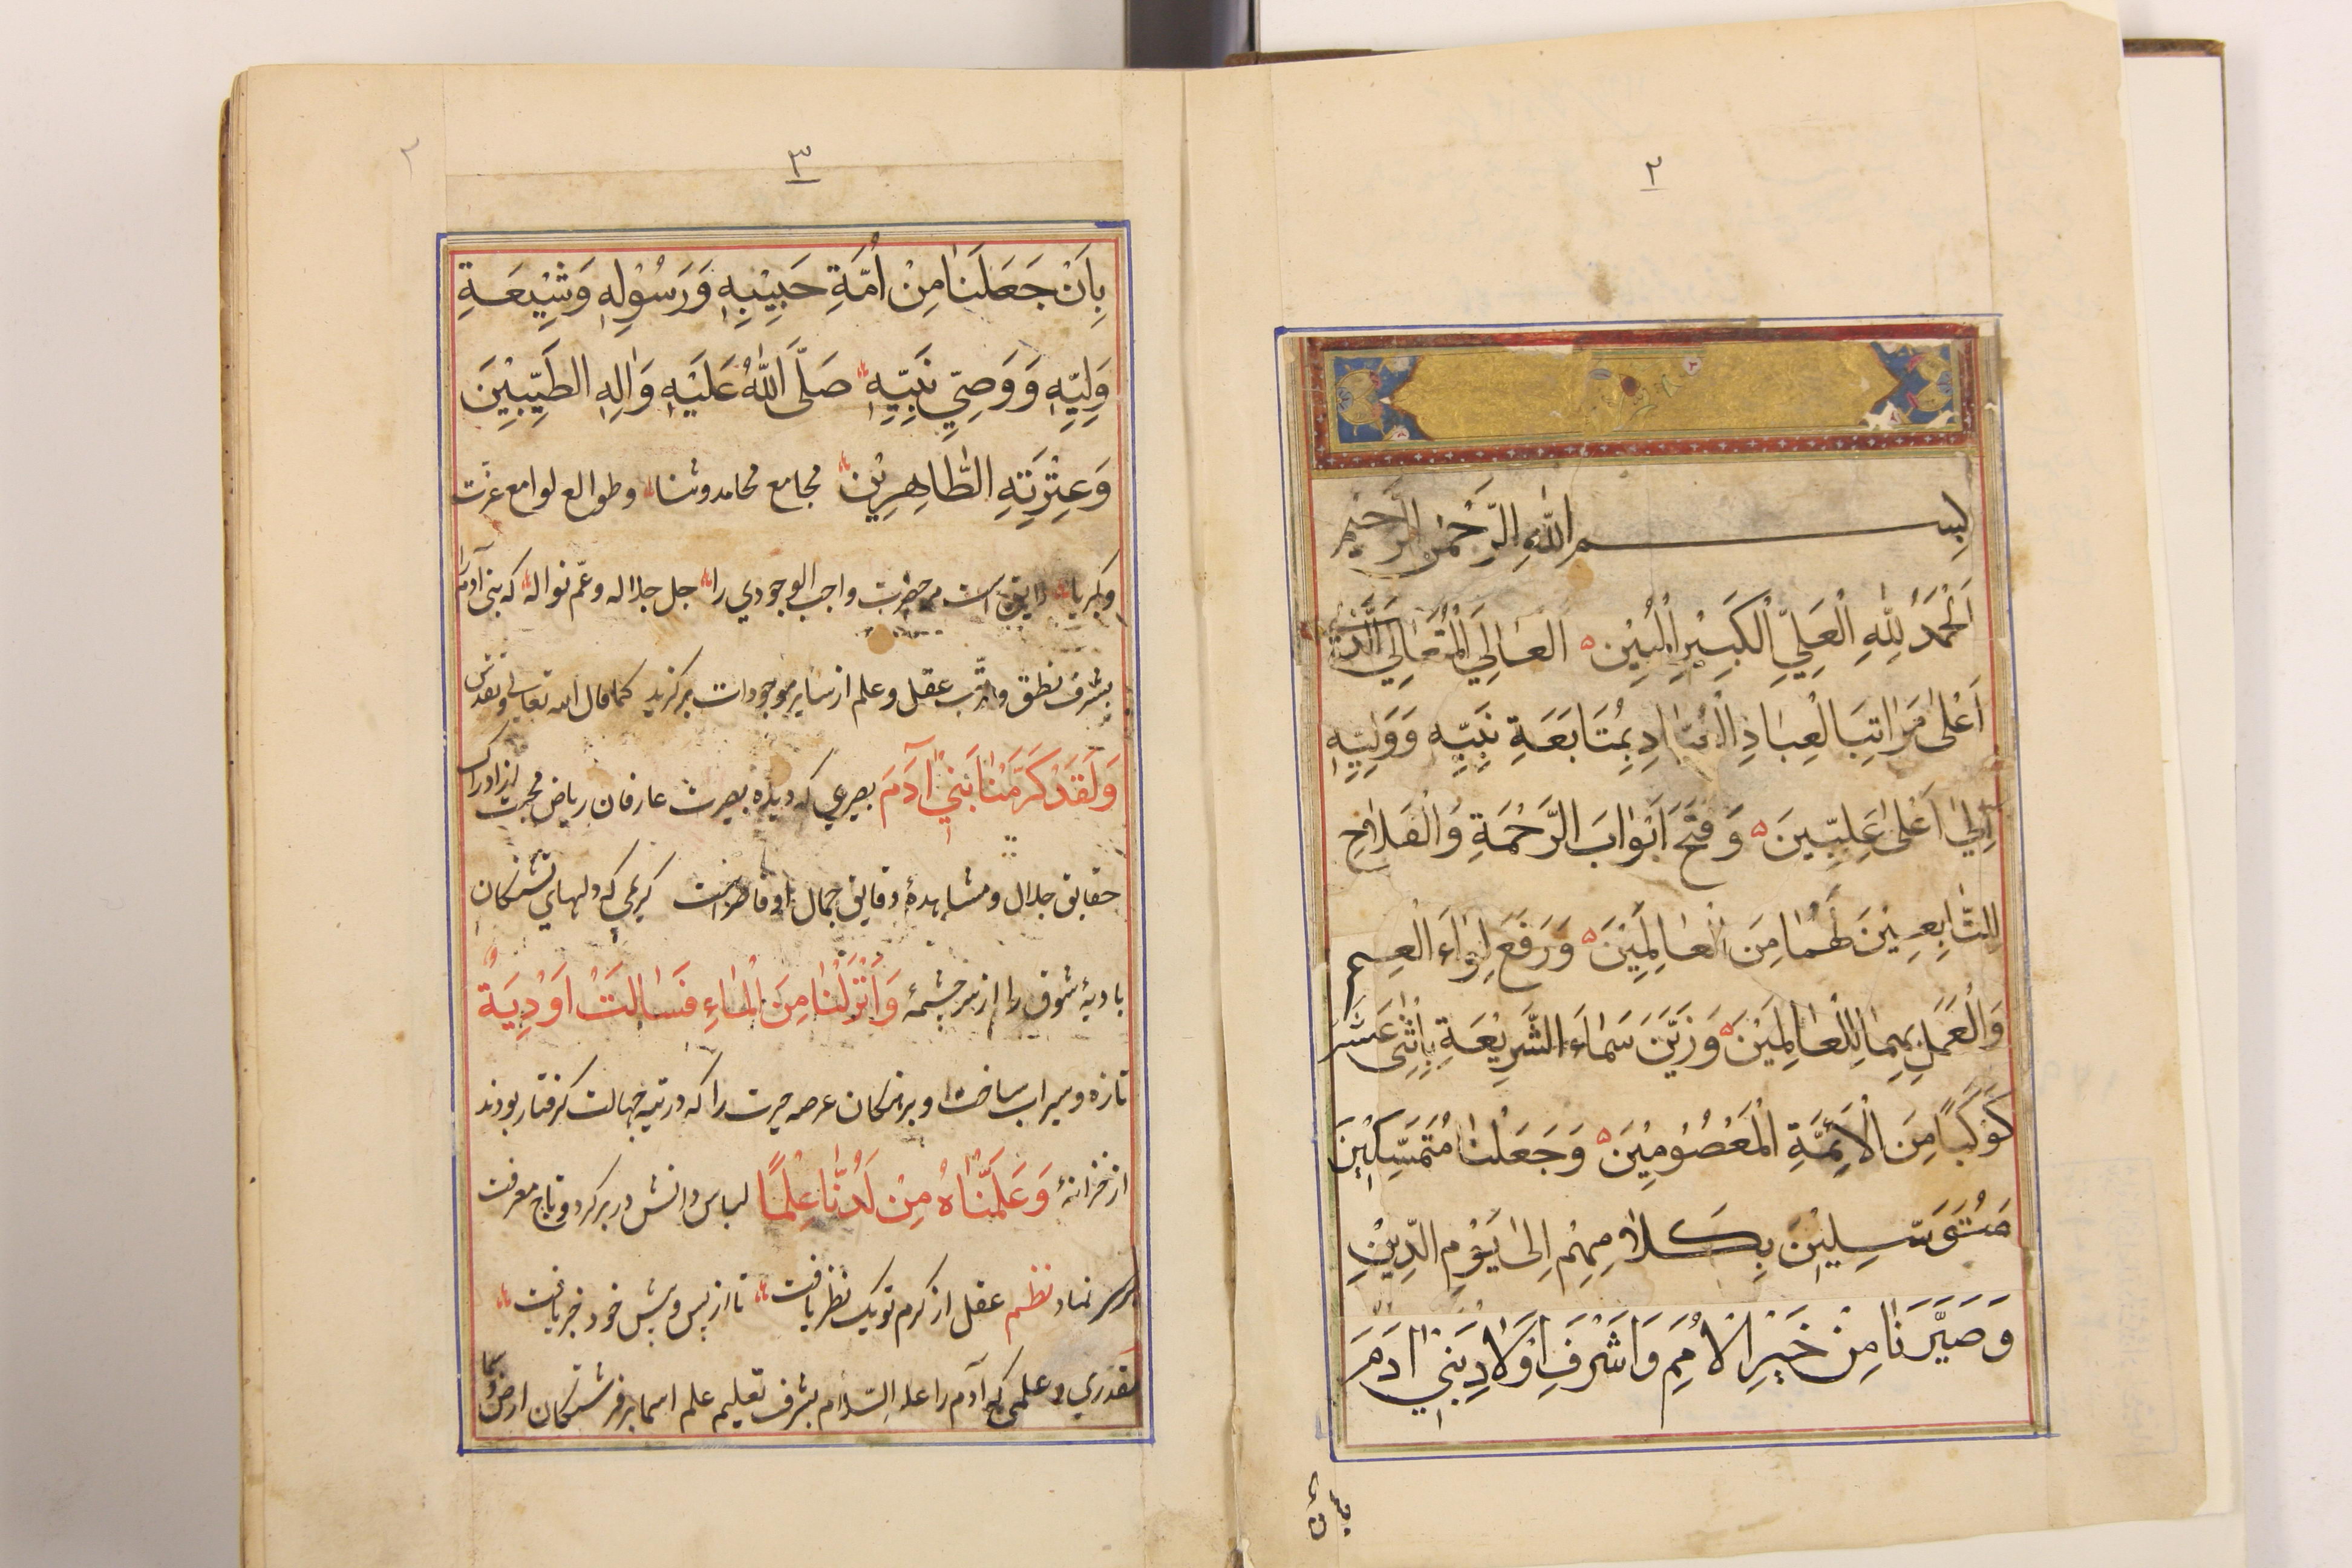 ٢
بِسْمِ اللّٰهِ الرَّحْمٰنِ الرَّحِيْمِ
اَلْحَمْدُ لِلّٰهِ الْعَلِيِّ الْكَبِيْرِ الْمُبِيْنِ الْعَالِيْ الْمُتَعَالِيْ الَّذِيْ
اَعْلٰى مَرَاتِبَ الْعِبَادِ بِمُتَابَعَةِ نَبِيِّهِ وَوَلِيِّهِ
اِلٰى اَعْلٰى عَلِيِّيْنَ وَفَتَحَ اَبْوَابَ الرَّحْمَةِ وَالْفَلَاحِ
لِلتَّابِعِيْنَ لَهُمَا مِنَ الْعَالَمِيْنَ وَرَفَعَ لِوَاءَ الْعِلْمِ
وَالْعَمَلِ بِهِمَا لِلْعَالَمِيْنَ وَزَيَّنَ سَمَاءَ الشَّرِيْعَةِ بِاِثْنٰى عَشَرَ
كَوْكَبًا مِنَ الْاَئِمَّةِ الْمَعْصُوْمِيْنَ وَجَعَلْنَا مُتَمَسِّكِيْنَ
مُتَوَسِّلِيْنَ بِكَلَامِهِمْ اِلٰى يَوْمِ الدِّيْنِ
وَصَيَّرَنَا مِنْ خَيْرِ الْاُمَمِ وَاَشْرَفِ اَوْلَادِ بَنِيْ اٰدَمَ
بان
٣
٢
بِاَنْ جَعَلَنَا مِنْ اُمَّةِ حَبِيْبِهٖ وَرَسُوْلِهٖ وَشِيْعَةِ
وَلِيِّهٖ وَوَصِيِّ نَبِيِّهٖ صَلَّى اللّٰهُ عَلَيْهِ وَاٰلِهِ الطَّيِّبِيْنَ
وَعِتْرَتِهِ الطَّاهِرِيْنَ مجامع محامد وثنا وطوالع لوامع عزت
وكبريا لايق است مر حضرت واجب الوجودي را جل جلاله وعمّ نواله كه بنى آدم را
بشرف نطق و عقل وعلم از ساير موجودات بركزيد كما قال الله تعالى وتقدس
وَلَقَدْ كَرَّمْنَا بَنِيْ آدَمَ بصيرى كه ديده بصيرت عارفان رياض محبت از ادراك
حقايق جلال ومشاهدهٔ دقايق جمال او قاصر است كريمى كه دلهاى تشنكان
باديهٔ شوق را از سرچشمهٔ وَاَنْزَلْنَا مِنَ الْمَاءِ فَسَالَتْ اَوْدِيَةٌ
تازه وسيراب ساخت و برهنكان عرصه حيرت را كه در تيه جهالت كرفتار بودند
از خزانهٔ وَعَلَّمْنَاهُ مِنْ لَدُنَّا عِلْمًا لباس دانش در بر كرد وتاج معرفت
بر سر نهاد نظم عقل از كرم تو يك نظر يافت تا از پس و پيش خود خبر يافت
مقدرى و علمى كه آدم را عليه السّلام بشرف تعليم علم اسما بر فرشتكان ارض وسما